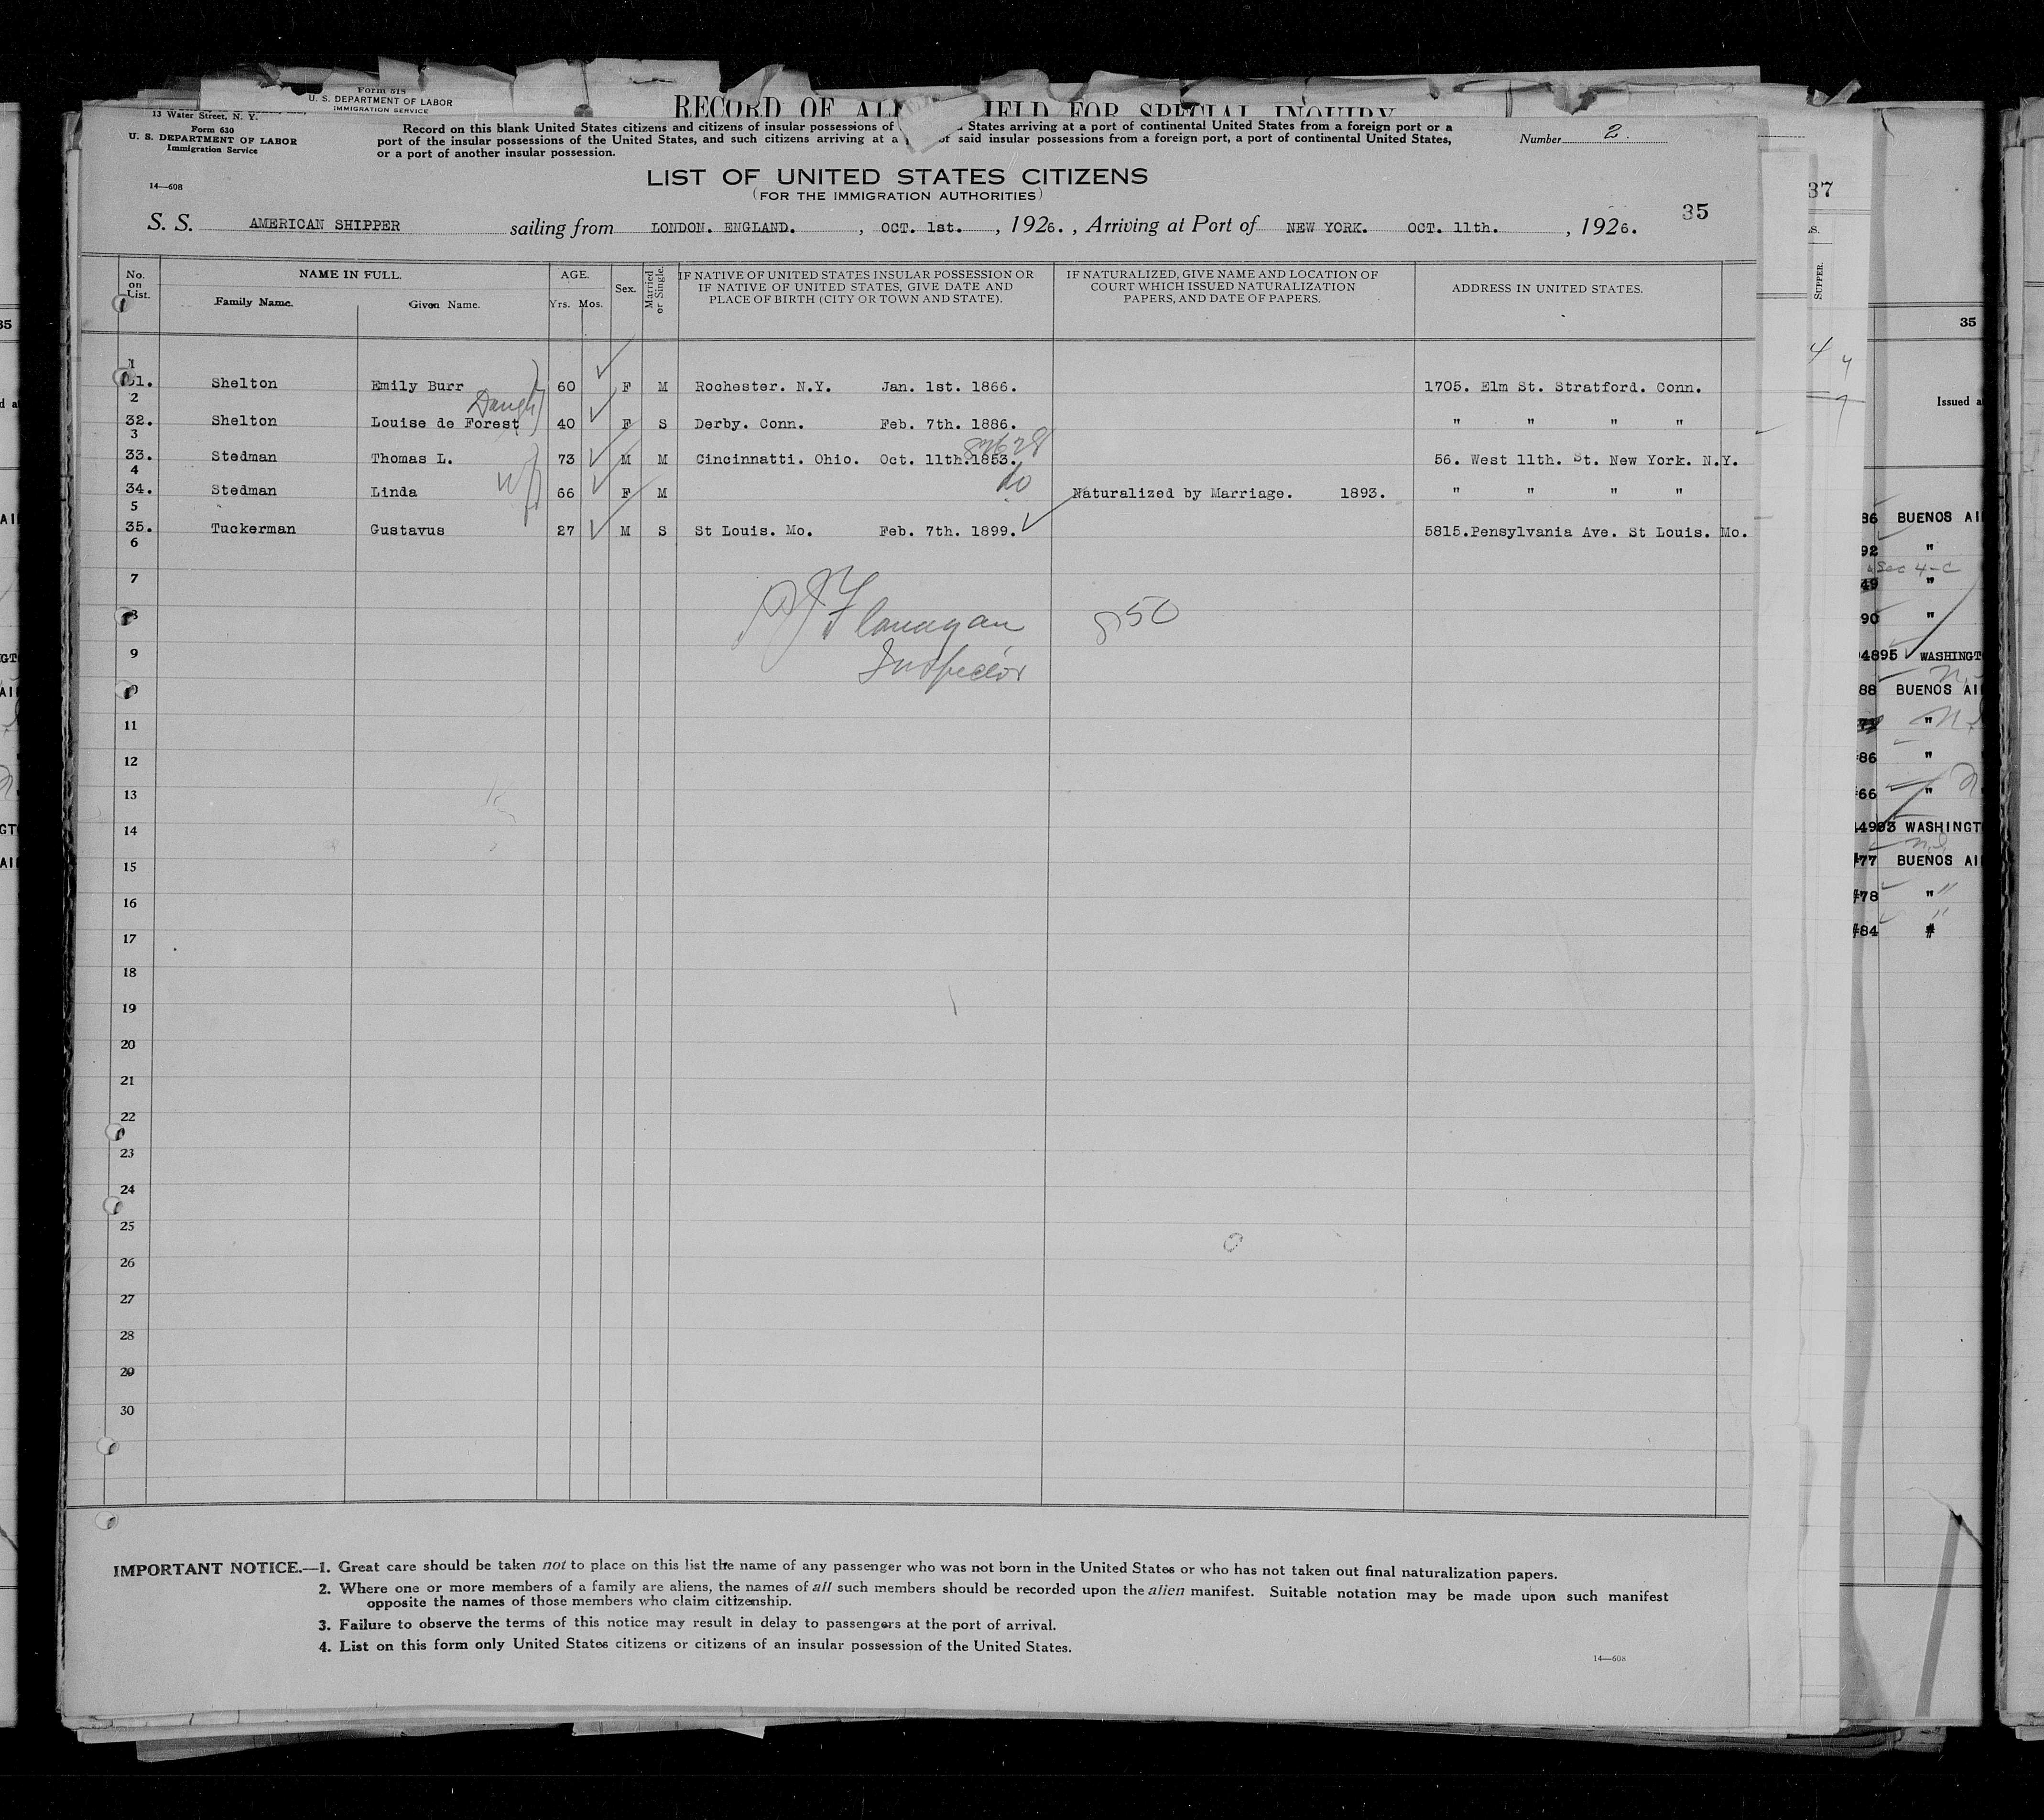 Form 518
U. S. DEPARTMENT OF LABOR
IMMIGRATION SERVICE
RECORD OF ALI ELD FOR SPECIAL INQUIRY
13 Water Street, N. Y.
Form 630
U. S. DEPARTMENT OF LABOR
Immigration Service
14—608
Record on this blank United States citizens and citizens of insular possessions of States arriving at a port of continental United States from a foreign port or a
port of the insular possessions of the United States, and such citizens arriving at a of said insular possessions from a foreign port, a port of continental United States,
or a port of another insular possession.
Number 2.
LIST OF UNITED STATES CITIZENS
(FOR THE IMMIGRATION AUTHORITIES)
35
S. S. AMERICAN SHIPPER sailing from LONDON. ENGLAND. , OCT. 1st. , 1926. , Arriving at Port of NEW YORK. OCT. 11th. , 1926.
No. on List. NAME IN FULL. Family Name. Given Name. AGE. Yrs. Mos. Sex. Married or Single. IF NATIVE OF UNITED STATES INSULAR POSSESSION OR IF NATIVE OF UNITED STATES, GIVE DATE AND PLACE OF BIRTH (CITY OR TOWN AND STATE). IF NATURALIZED, GIVE NAME AND LOCATION OF COURT WHICH ISSUED NATURALIZATION PAPERS, AND DATE OF PAPERS. ADDRESS IN UNITED STATES.
1
31. Shelton Emily Burr 60 F M Rochester. N.Y. Jan. 1st. 1866. 1705. Elm St. Stratford. Conn.
2 Daugh
32. Shelton Louise de Forest 40 F S Derby. Conn. Feb. 7th. 1886. " " " "
3
33. Stedman Thomas L. 73 M M Cincinnatti. Ohio. Oct. 11th.1853. 56. West 11th. St. New York. N.Y.
4 wf do
34. Stedman Linda 66 F M Naturalized by Marriage. 1893. " " " "
5
35. Tuckerman Gustavus 27 M S St Louis. Mo. Feb. 7th. 1899. 5815.Pensylvania Ave. St Louis. Mo.
6
7
8 Flanagan 850
9 Inspector
10
11
12
13
14
15
16
17
18
19
20
21
22
23
24
25
26
27
28
29
30
IMPORTANT NOTICE.—1. Great care should be taken not to place on this list the name of any passenger who was not born in the United States or who has not taken out final naturalization papers.
2. Where one or more members of a family are aliens, the names of all such members should be recorded upon the alien manifest. Suitable notation may be made upon such manifest
opposite the names of those members who claim citizenship.
3. Failure to observe the terms of this notice may result in delay to passengers at the port of arrival.
4. List on this form only United States citizens or citizens of an insular possession of the United States.
14—608
37
SUPPER.
35
Issued a
86 BUENOS AI
92 "
Sec 4-C
49 "
90 "
4895 WASHINGT
88 BUENOS AI
"
86 "
66 "
4993 WASHINGT
77 BUENOS AI
#78 "
#84 #